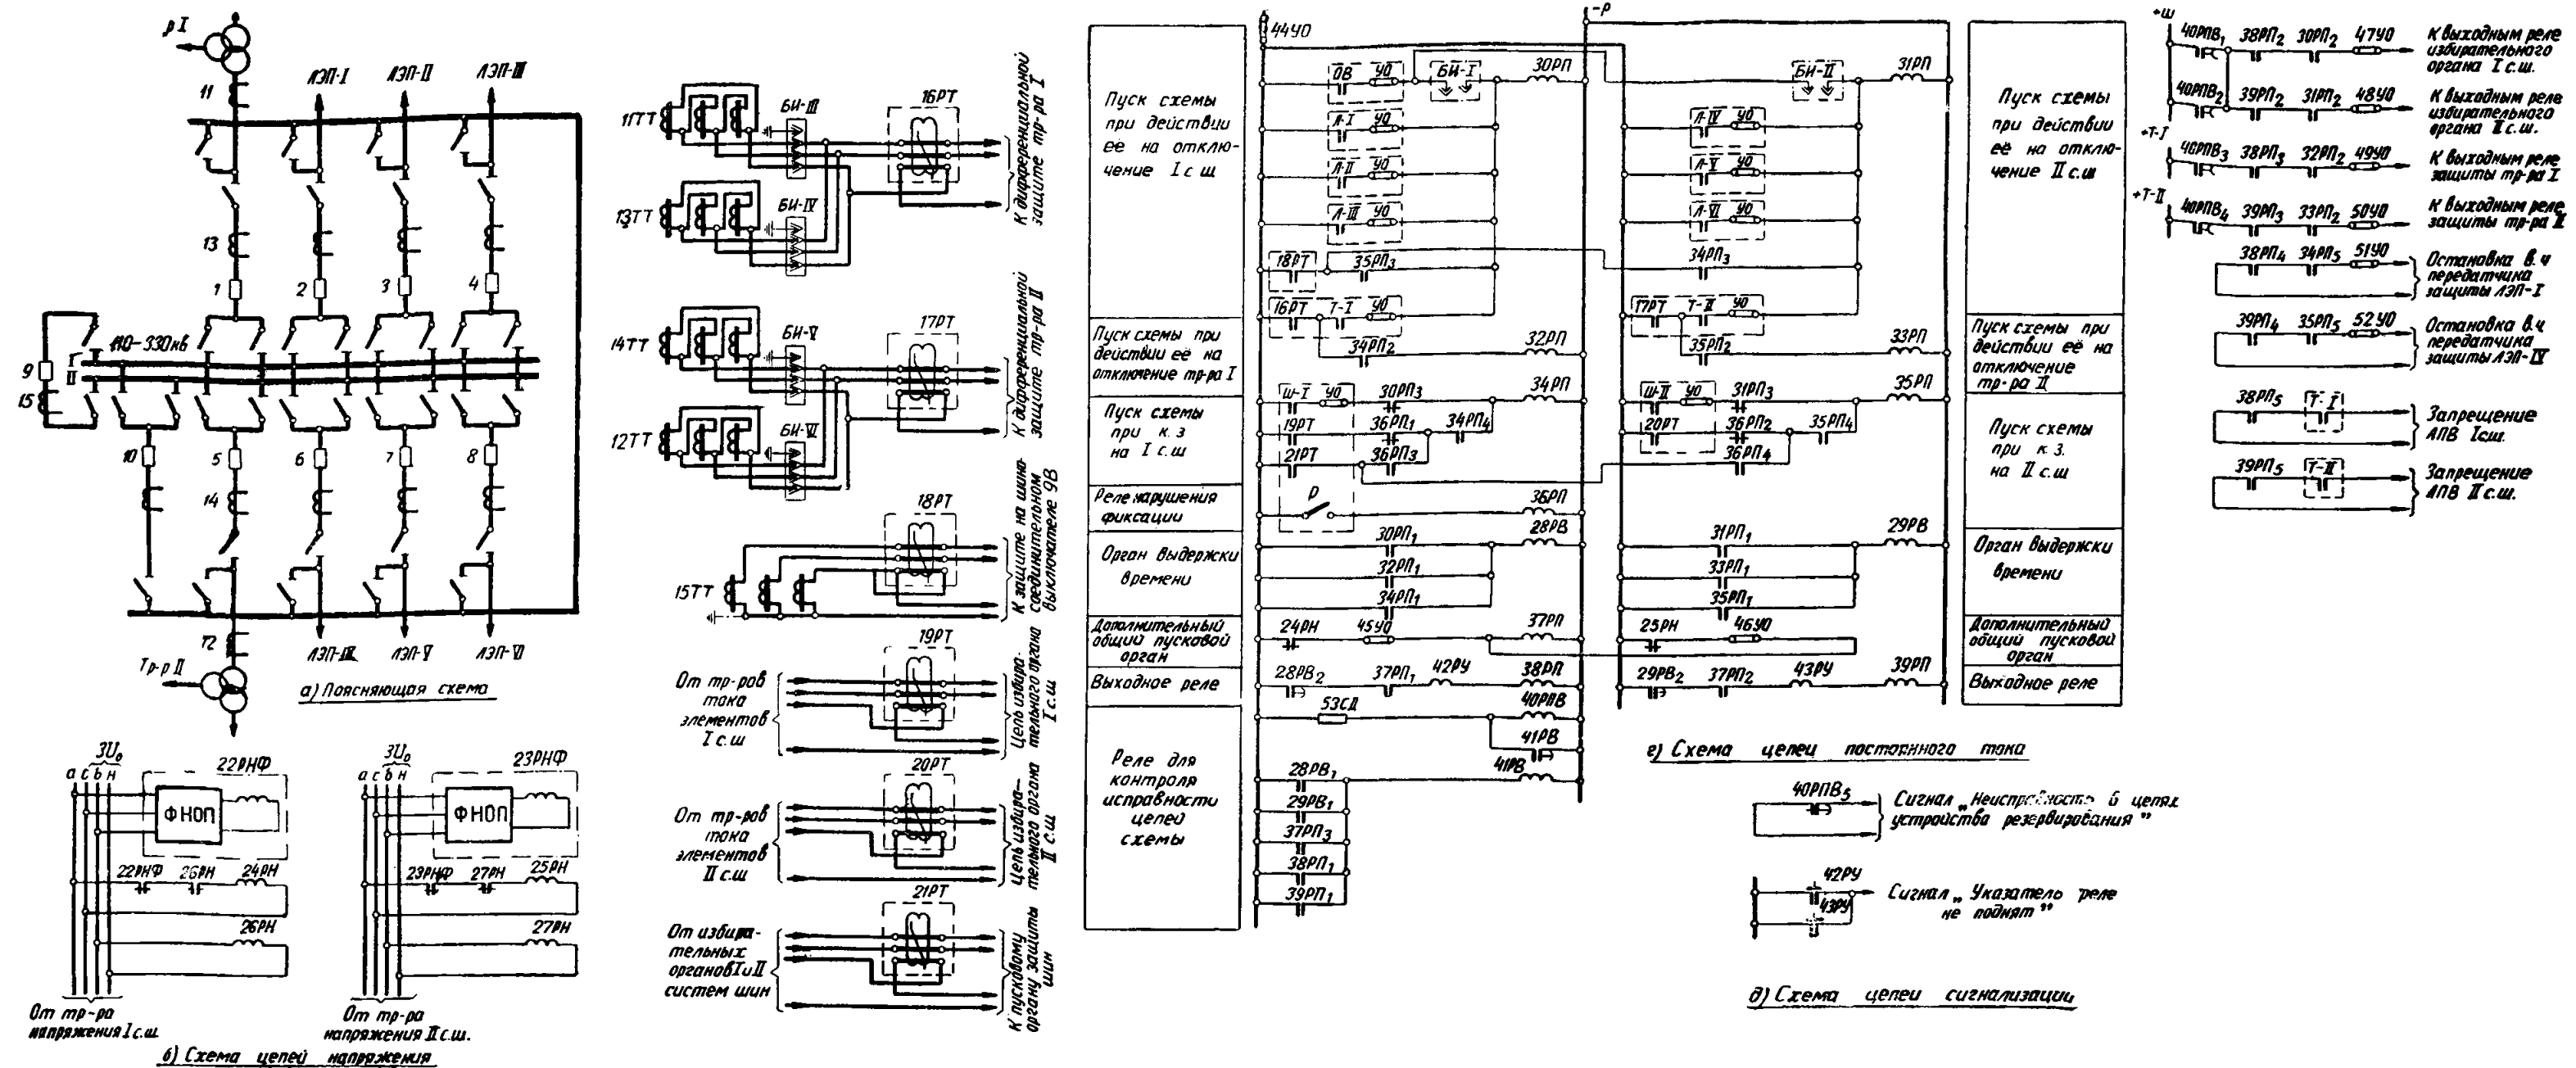 р I
11
ЛЭП-I
ЛЭП-II
ЛЭП-III
13
1
2
3
4
110-330 кв
I
II
9
15
10
5
6
7
8
14
12
Тр-р II
ЛЭП-IV
ЛЭП-V
ЛЭП-VI
а) Поясняющая схема
3U₀
а с b н
22РНФ
ФНОП
22РНФ
26РН
24РН
26РН
От тр-ра
напряжения I с.ш.
3U₀
а с b н
23РНФ
ФНОП
23РНФ
27РН
25РН
27РН
От тр-ра
напряжения II с.ш.
б) Схема цепей напряжения
11ТТ
БИ-III
16РТ
13ТТ
БИ-IV
К дифференциальной
защите тр-ра I
14ТТ
БИ-V
17РТ
12ТТ
БИ-VI
К дифференциальной
защите тр-ра II
18РТ
15ТТ
К защите на шино-
соединительном
выключателе 9В
19РТ
От тр-ров
тока
элементов
I с.ш
Цепь избира-
тельного органа
I с.ш
20РТ
От тр-ров
тока
элементов
II с.ш
Цепь избира-
тельного органа
II с.ш
21РТ
От избира-
тельных
органов I и II
систем шин
К пусковому
органу защиты
шин
Пуск схемы
при действии
её на отклю-
чение I с ш
Пуск схемы при
действии её на
отключение тр-ра I
Пуск схемы
при к.з
на I с.ш
Реле нарушения
фиксации
Орган выдержки
времени
Дополнительный
общий пусковой
орган
Выходное реле
Реле для
контроля
исправности
цепей
схемы
44УО
-Р
ОВ УО БИ-I 30РП
Л-I УО
Л-II УО
Л-III УО
18РТ 35РП₃
16РТ Т-I УО
34РП₂ 32РП
Ш-I УО 30РП₃ 34РП
19РТ 36РП₁ 34РП₄
21РТ 36РП₃
Р 36РП
30РП₁ 28РВ
32РП₁
34РП₁
24РН 45УО 37РП
28РВ₂ 37РП₁ 42РУ 38РП
53СД 40РПВ
41РВ
28РВ₁ 41РВ
29РВ₁
37РП₃
38РП₁
39РП₁
БИ-II 31РП
Л-IV УО
Л-V УО
Л-VI УО
34РП₃
17РТ Т-II УО
35РП₂ 33РП
Ш-II УО 31РП₃ 35РП
20РТ 36РП₂ 35РП₄
36РП₄
31РП₁ 29РВ
33РП₁
35РП₁
25РН 46УО
29РВ₂ 37РП₂ 43РУ 39РП
Пуск схемы
при действии
её на отклю-
чение II с.ш
Пуск схемы при
действии её на
отключение
тр-ра II
Пуск схемы
при к з.
на II с.ш
Орган выдержки
времени
Дополнительный
общий пусковой
орган
Выходное реле
г) Схема цепей постоянного тока
40РПВ₅
Сигнал „Неисправность в цепях
устройства резервирования”
42РУ
43РУ
Сигнал „Указатель реле
не поднят”
д) Схема цепей сигнализации
+Ш
40РПВ₁ 38РП₂ 30РП₂ 47УО
К выходным реле
избирательного
органа I с.ш.
40РПВ₂ 39РП₂ 31РП₂ 48УО
К выходным реле
избирательного
органа II с.ш.
+Т-I
40РПВ₃ 38РП₃ 32РП₂ 49УО
К выходным реле
защиты тр-ра I
+Т-II
40РПВ₄ 39РП₃ 33РП₂ 50УО
К выходным реле
защиты тр-ра II
38РП₄ 34РП₅ 51УО
Остановка в.ч
передатчика
защиты ЛЭП-I
39РП₄ 35РП₅ 52УО
Остановка в.ч
передатчика
защиты ЛЭП-IV
38РП₅ Т-I
Запрещение
АПВ I с.ш.
39РП₅ Т-II
Запрещение
АПВ II с.ш.